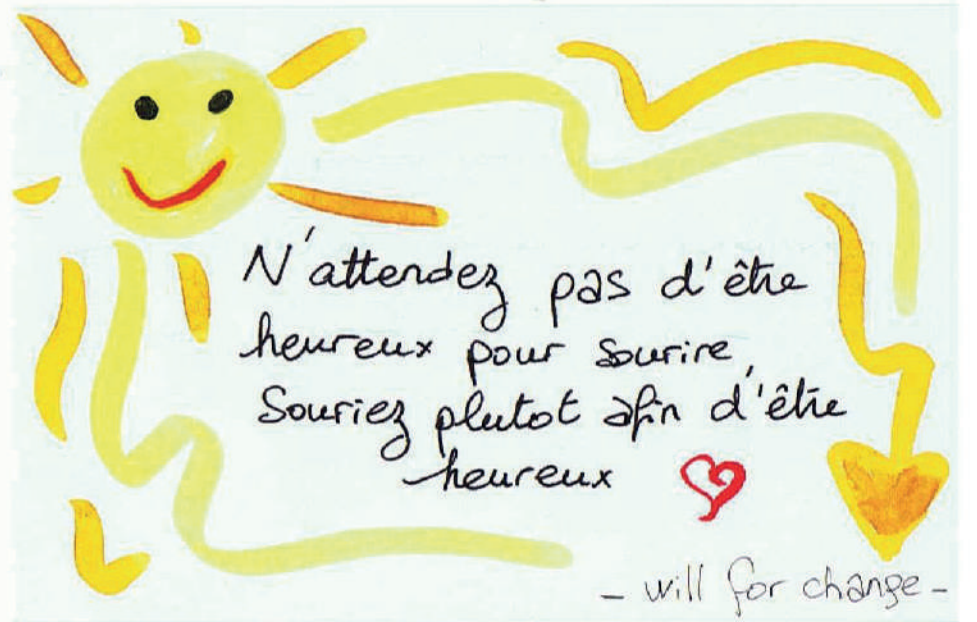 N'attendez pas d'être
heureux pour sourire,
Souriez plutot afin d'être
heureux
- will for change -